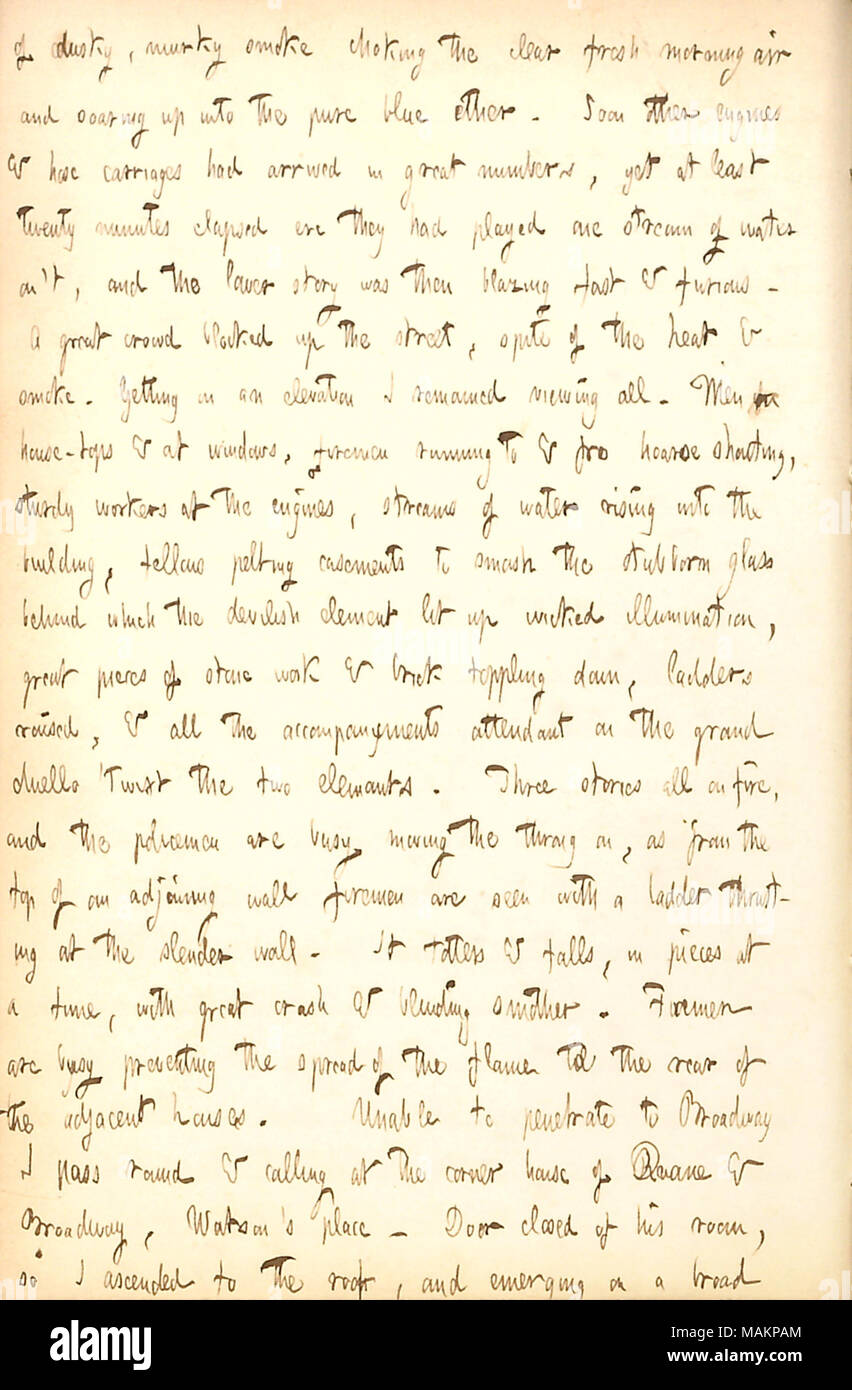 of dusky, murky smoke choking the clear fresh morning air
and soaring up into the pure blue ether. Soon other engines
& hose carriages had arrived in great numbers, yet at least
twenty minutes elapsed ere they had played one stream of water
on't, and the lower story was then blazing fast & furious -
A great crowd blocked up the street, spite of the heat &
smoke. Getting on an elevation I remained viewing all. Men on
house-tops & at windows, firemen running to & fro hoarse shouting,
sturdy workers at the engines, streams of water rising into the
building, fellows pelting casements to smash the stubborn glass
behind which the devilish element lit up wicked illumination,
great pieces of stone work & brick toppling down, ladders
raised, & all the accompanyments attendant on the grand
duello 'twixt the two elements. Three stories all on fire,
and the policemen are busy moving the throng on, as from the
top of an adjoining wall firemen are seen with a ladder thrust-
ing at the slender wall. It totters & falls, in pieces at
a time, with great crash & blinding smother. Firemen
are busy preventing the spread of the flame to the rear of
the adjacent houses. Unable to penetrate to Broadway
I pass round & calling at the corner house of Duane &
Broadway, Watson's place - Door closed of his room,
so I ascended to the roof, and emerging on a broad
alamy
alamy
Image ID: MAKPAM
www.alamy.com